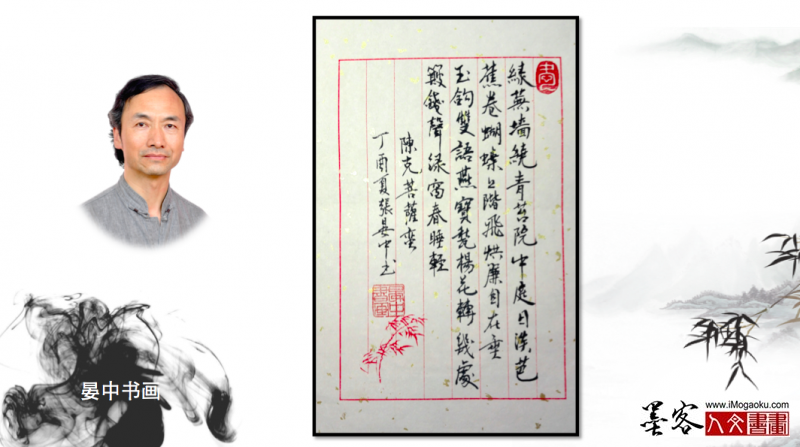 緑蕪墻繞青苔院中庭日淡芭
蕉卷蝴蝶上階飛烘簾自在垂
玉鈎雙語燕寶甃楊花轉幾處
簸錢聲渌窗春睡輕
陳克菩薩蠻
丁酉夏張晏中书
晏中书画
墨客
www.iMogaoku.com
人文書畫